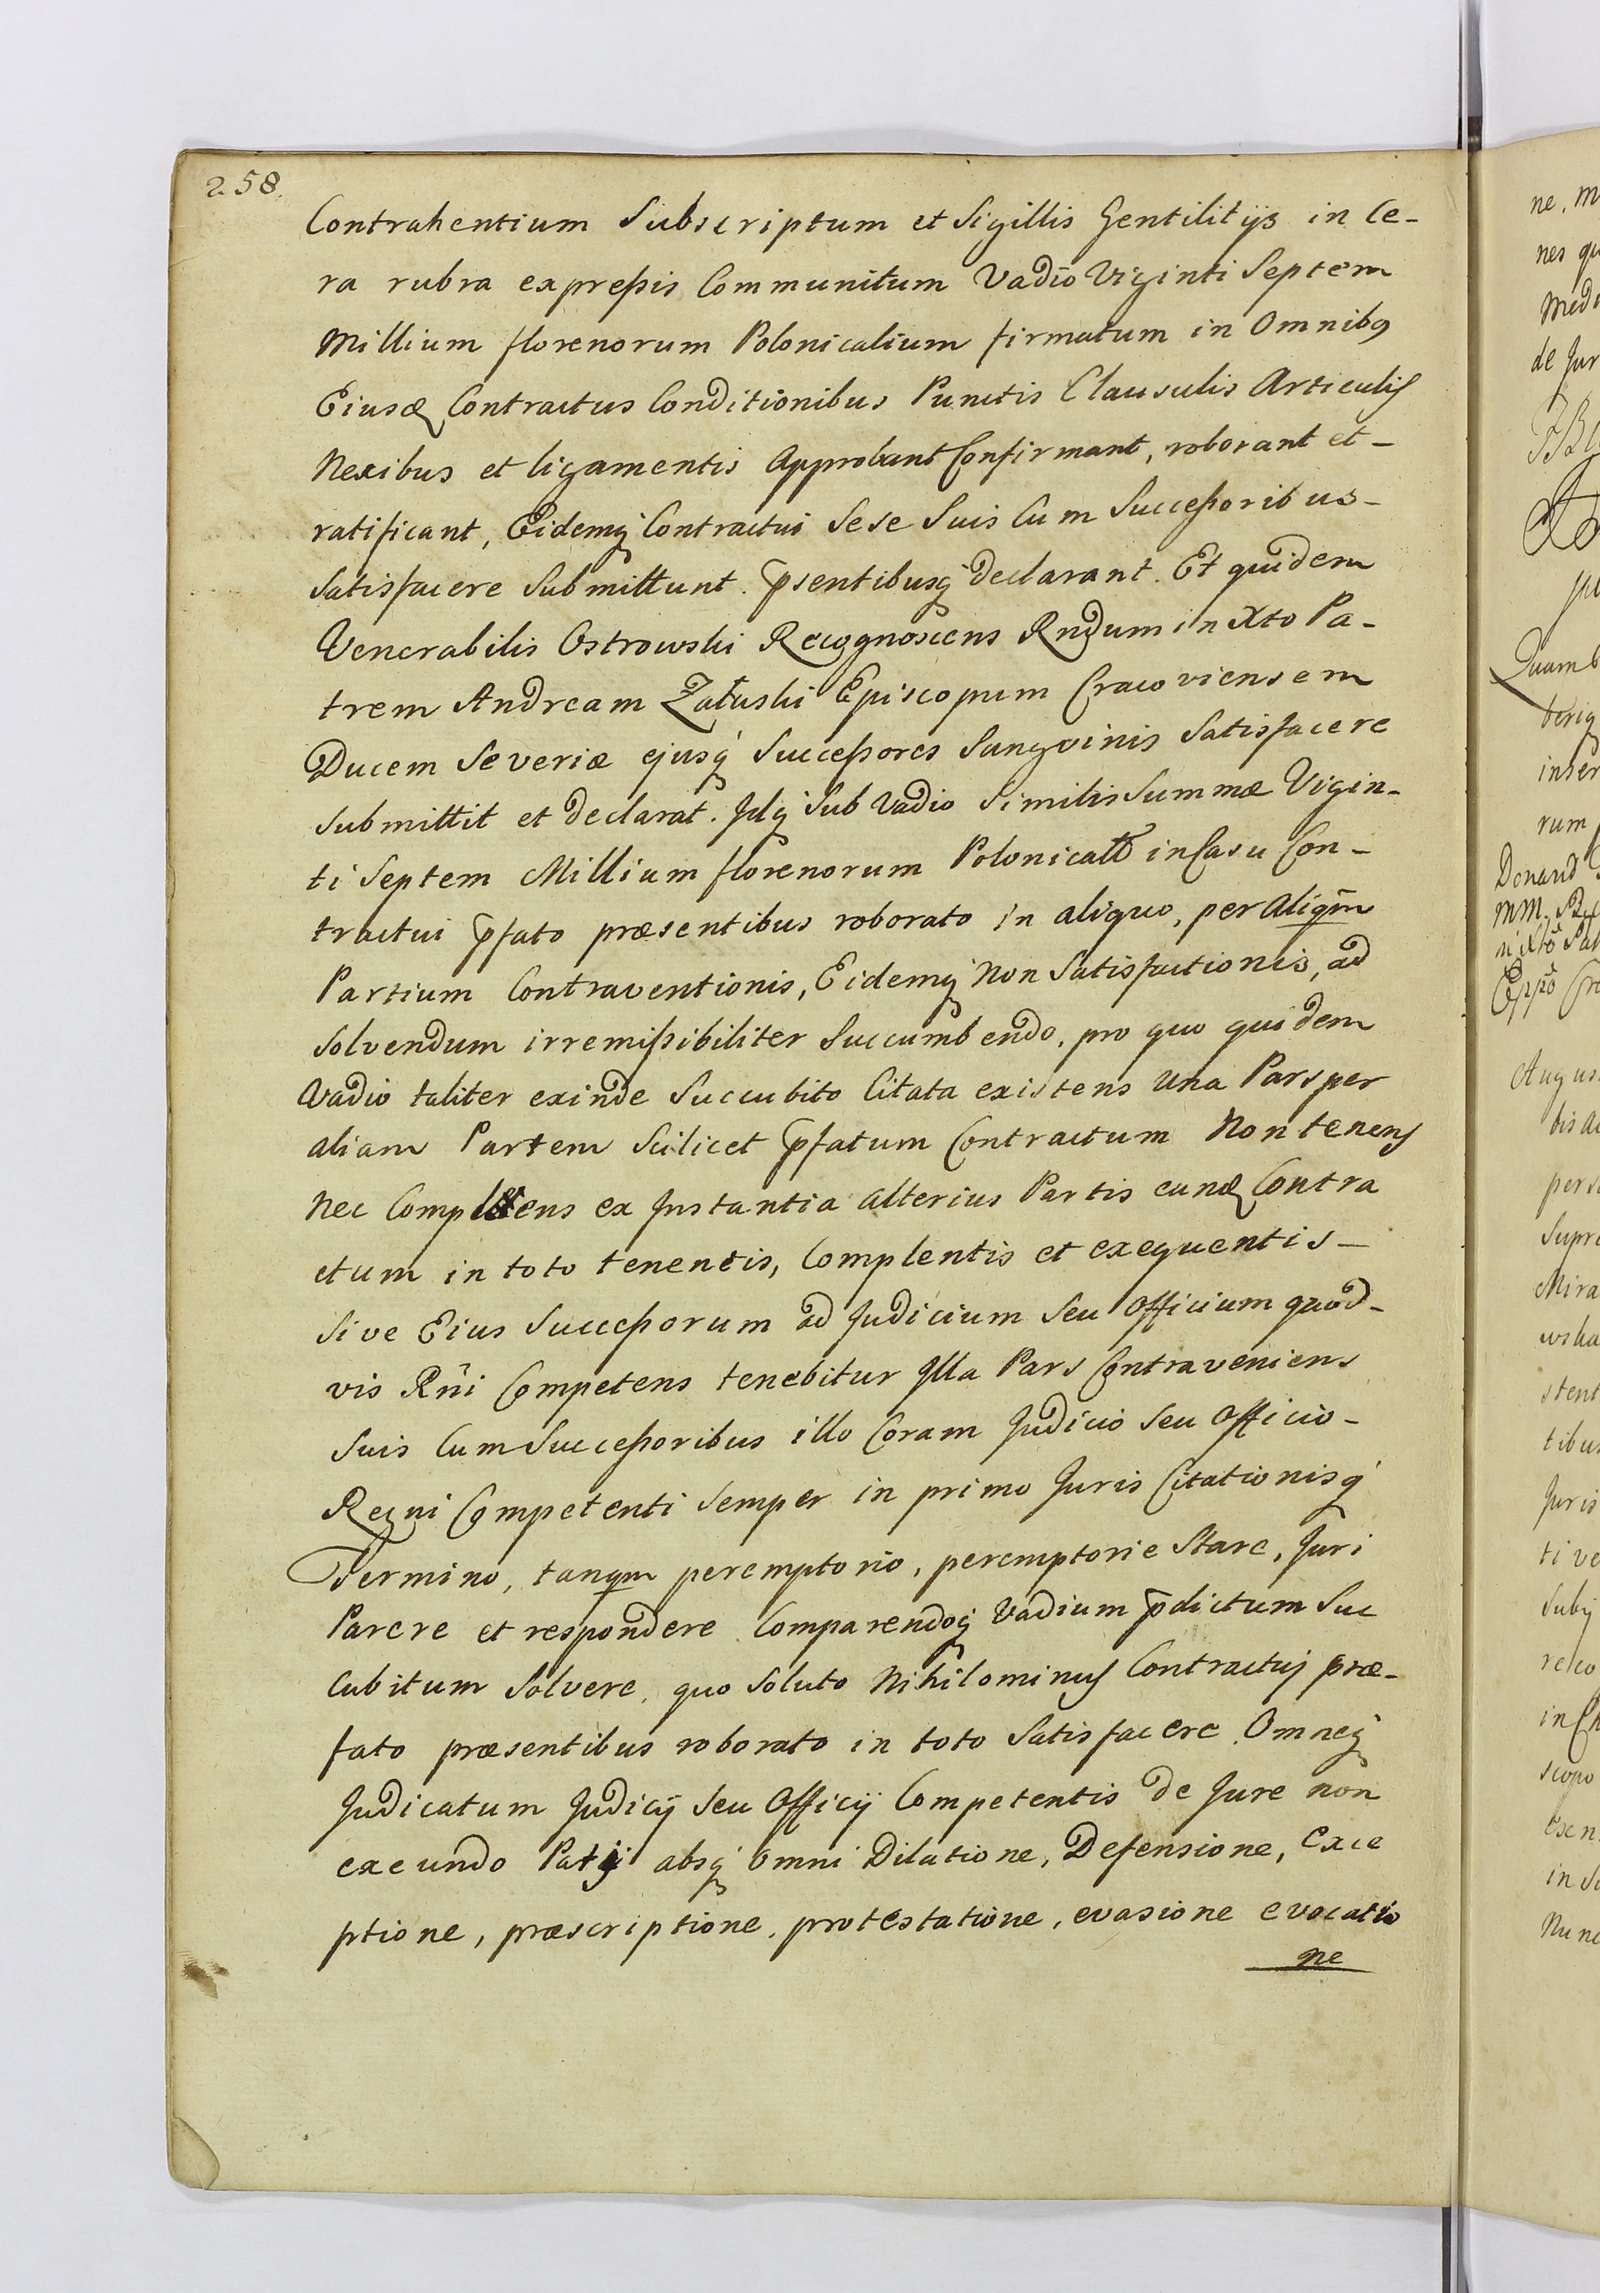 258.
Contrahentium Subscriptum et Sigillis Gentilitijs in Ce-
ra rubra expreßis Communitum Vadio Viginti Septem
Millium florenorum Polonicalium firmatum in Omnibꝯ
Eiusd Contractus Conditionibus Punctis Clausulis Articulis
Nexibus et ligamentis Approbant Confirmant, roborant et-
ratificant, Eidemq̀ Contractui Sese Suis Cum Succeßoribus-
Satisfacere Submittunt. p̄sentibusq̀ declarant. Et quidem
Venerabilis Ostrowski Recognoscens Rndum in Xto Pa-
trem Andream Załuski Episcopum Cracoviensem
Ducem Severiæ ejusq̀ Succeßores Sangvinis Satisfacere
submittit et declarat. Idq̀ Sub Vadio Similis Summæ Vigin-
ti Septem Millium florenorum Polonicall in Casu Con-
tractui p̄fato præsentibus roborato in aliquo, per aliqm̄
Partium Contraventionis, Eidemq̀ Non Satisfactionis, ad
solvendum irremißibiliter Succumbendo, pro quo quidem
Vadio taliter exinde Succubito Citata existens Una Pars per
aliam Partem Scilicet p̄fatum Contractum Non tenens
Nec Complens ex Instantia alterius Partis eund Contra
ctum in toto tenentis, Complentis et exequentis-
Sive Eius Succeßorum ad Judicium Seu Officium quod-
vis Rñi Competens tenebitur Illa Pars Contraveniens
Suis Cum Succeßoribus illo Coram Judicio Seu Officio-
Regni Competenti Semper in primo Juris Citationisq̀
Termino, tanqm peremptorio, peremptorie Stare, Juri
Parere et respondere Comparendoq̀ Vadium p̄dictum Suc
Cubitum Solvere, quo Soluto Nihilominus Contractui præ-
fato præsentibus roborato in toto Satisfacere. Omneq̀
Judicatum Judicij Seu Officij Competentis de Jure non
exeundo Pati absq̀ Omni Dilatione, Defensione, Exce
ptione, præscriptione, protestatione, evasione evocatio
ne
ne, m
nes qu
de Jur
Quamb
inser
rum
Augus
bis
pers
Supr
Mira
wska
stent
tibus
Juris
tive
Subij
reco
in Ch
scopo
Nunc